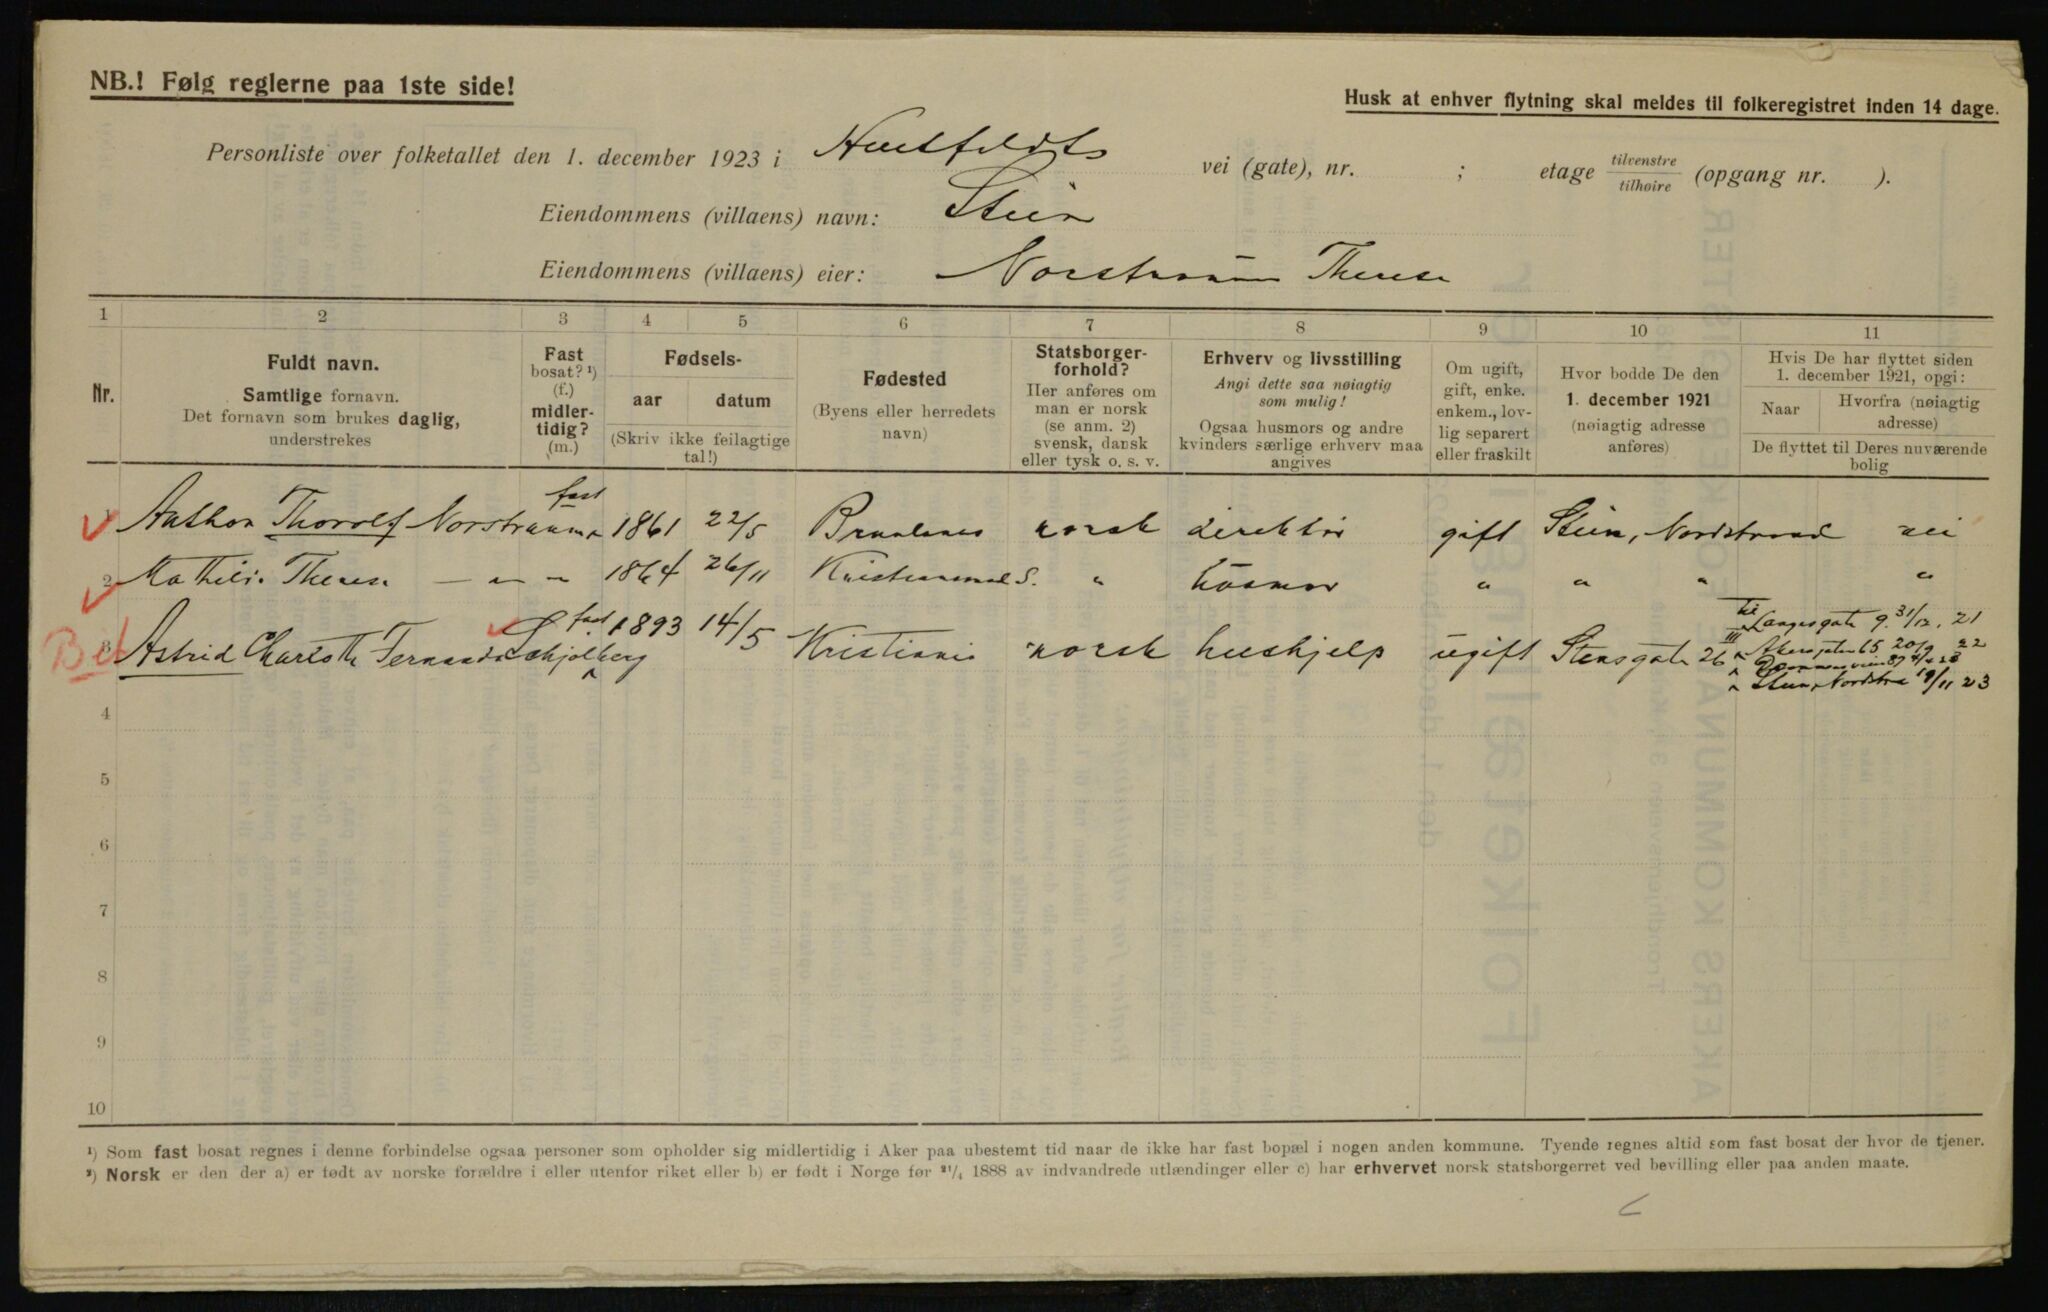 NB.! Følg reglerne paa 1ste side!
Husk at enhver flytning skal meldes til folkeregistret inden 14 dage.
Personliste over folketallet den 1. december 1923 i Huitfeldts vei (gate), nr. ; etage tilvenstre / tilhøire (opgang nr. ).
Eiendommens (villaens) navn: Stein
Eiendommens (villaens) eier: Norstrøm Therese
1 2 3 4 5 6 7 8 9 10 11
Nr.
Fuldt navn.
Samtlige fornavn.
Det fornavn som brukes daglig,
understrekes
Fast
bosat? ¹)
(f.)
midler-
tidig?
(m.)
Fødsels-
aar datum
(Skriv ikke feilagtige
tal!)
Fødested
(Byens eller herredets
navn)
Statsborger-
forhold?
Her anføres om
man er norsk
(se anm. 2)
svensk, dansk
eller tysk o. s. v.
Erhverv og livsstilling
Angi dette saa nøiagtig
som mulig!
Ogsaa husmors og andre
kvinders særlige erhverv maa
angives
Om ugift,
gift, enke.
enkem., lov-
lig separert
eller fraskilt
Hvor bodde De den
1. december 1921
(nøiagtig adresse
anføres)
Hvis De har flyttet siden
1. december 1921, opgi:
Naar Hvorfra (nøiagtig
adresse)
De flyttet til Deres nuværende
bolig
1 Anthon Thorolf fast 1861 22/5 Brunlanes norsk direktør gift Stein, Nordstrand nei
2 Mathilde Therese — " — 1864 26/11 Kristiansund S. " husmor " " " "
Bet 3 Astrid Charlotte Fernanda Skjolberg fast 1893 14/5 Kristiania norsk hushjelp ugift Stensgate 26 III til Langesgate 9. 31/12. 21
Akersgaten 65 20/9 22
Stein, Nordstra 19/11 23
4
5
6
7
8
9
10
¹) Som fast bosat regnes i denne forbindelse ogsaa personer som opholder sig midlertidig i Aker paa ubestemt tid naar de ikke har fast bopæl i nogen anden kommune. Tyende regnes altid som fast bosat der hvor de tjener.
²) Norsk er den der a) er født av norske forældre i eller utenfor riket eller b) er født i Norge før ²¹/₄ 1888 av indvandrede utlændinger eller c) har erhvervet norsk statsborgerret ved bevilling eller paa anden maate.